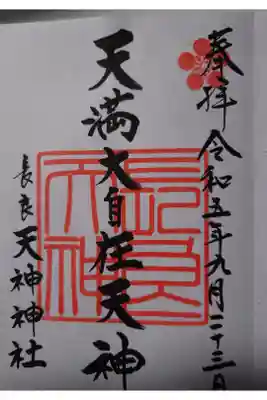 奉拝 令和五年九月二十三日
天満大自在天神
長良天神神社